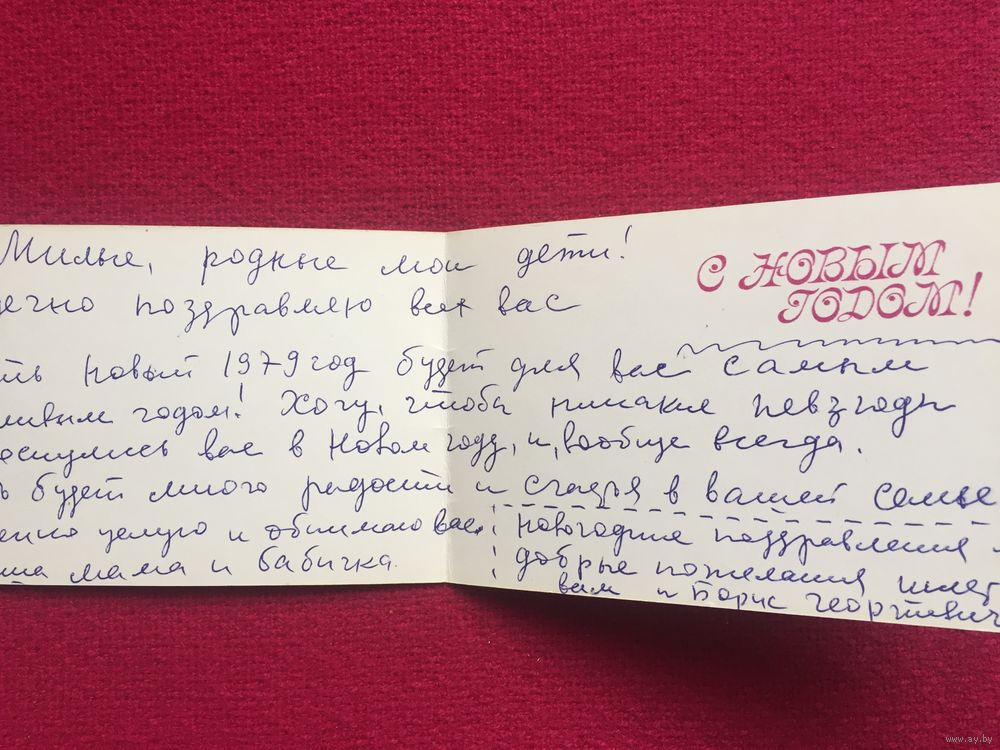 Милые, родные мои дети!
ечно поздравляю всех вас
С НОВЫМ
ГОДОМ!
ть новый 1979 год будет для вас самым
ливым годом! Хочу, чтобы никакие невзгоды
оснулись вас в новом году, и, вообще всегда.
ь будет много радости и счастья в вашей семье
епко целую и обнимаю вас.
ша мама и бабичка.
новогодние поздравления и
добрые пожелания шлет
вам и Борис Георгиевич
www.ay.by